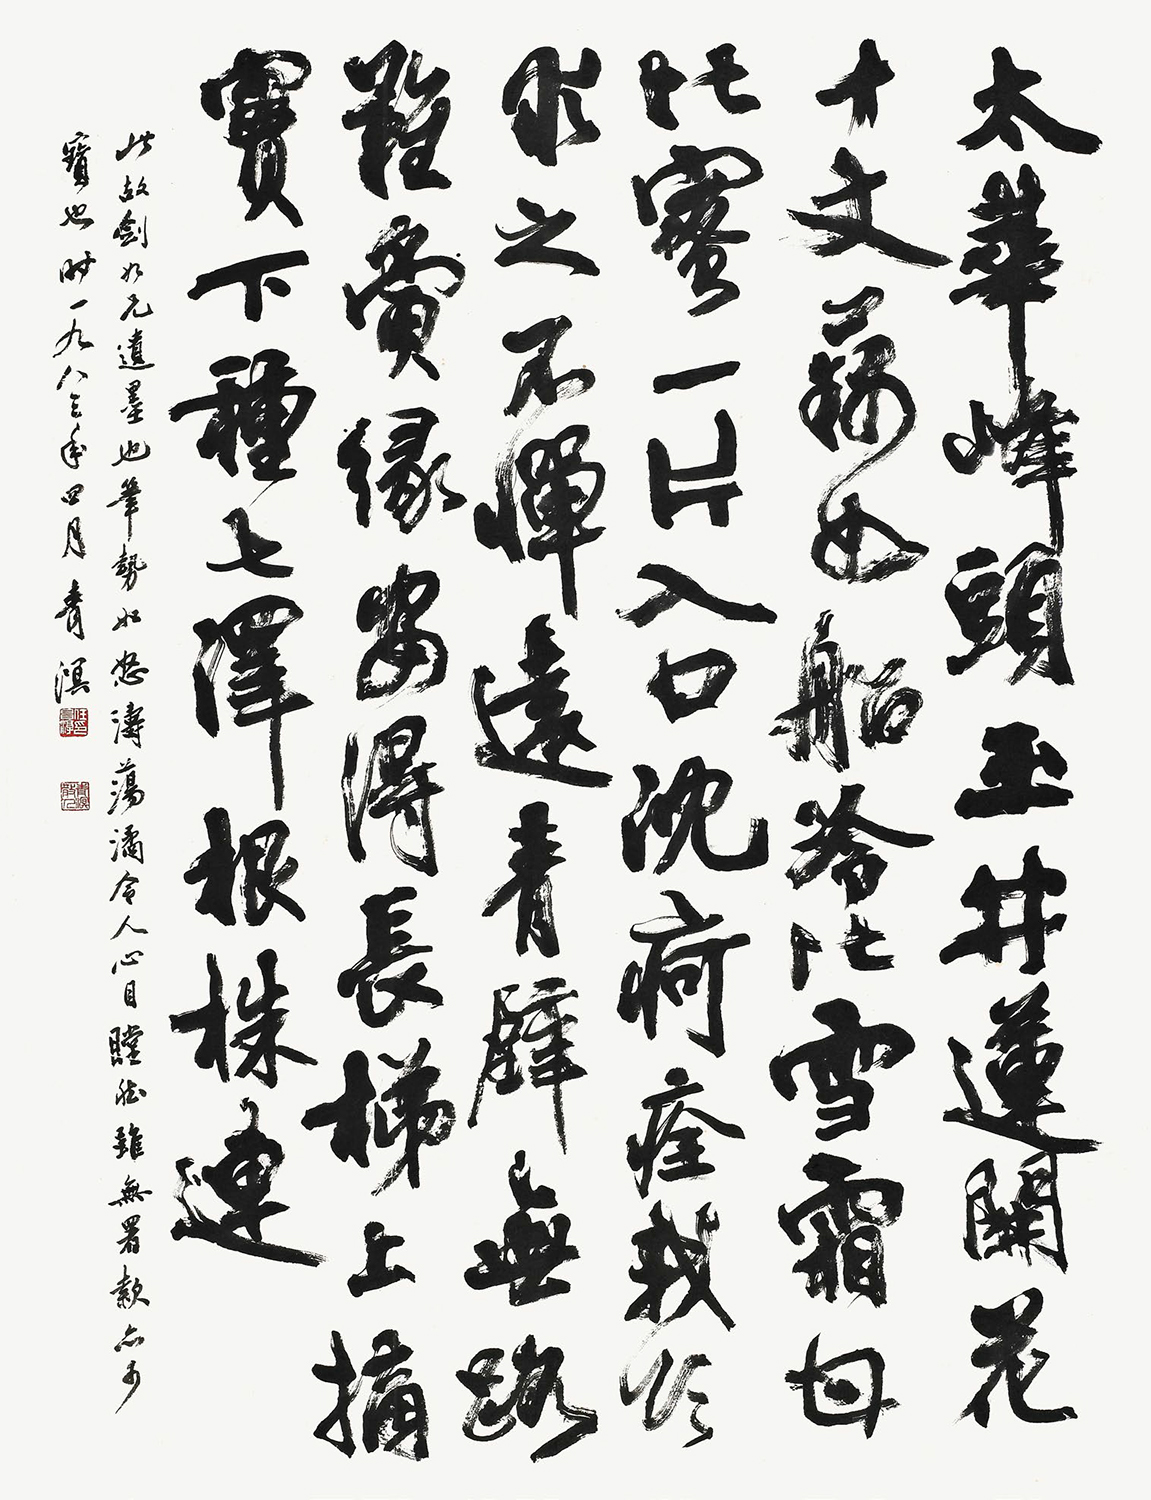 太華峰頭玉井蓮開花
十丈藕如船冷比雪霜甘
比蜜一片入口沈疴痊我欲
求之不憚遠青壁無路
難夤緣安得長梯上摘
實下種七澤根株連
此故劍如兄遺墨也筆勢如怒濤蕩潏令人心目瞠然雖無署款亦可
寶也時一九八三年四月青溟